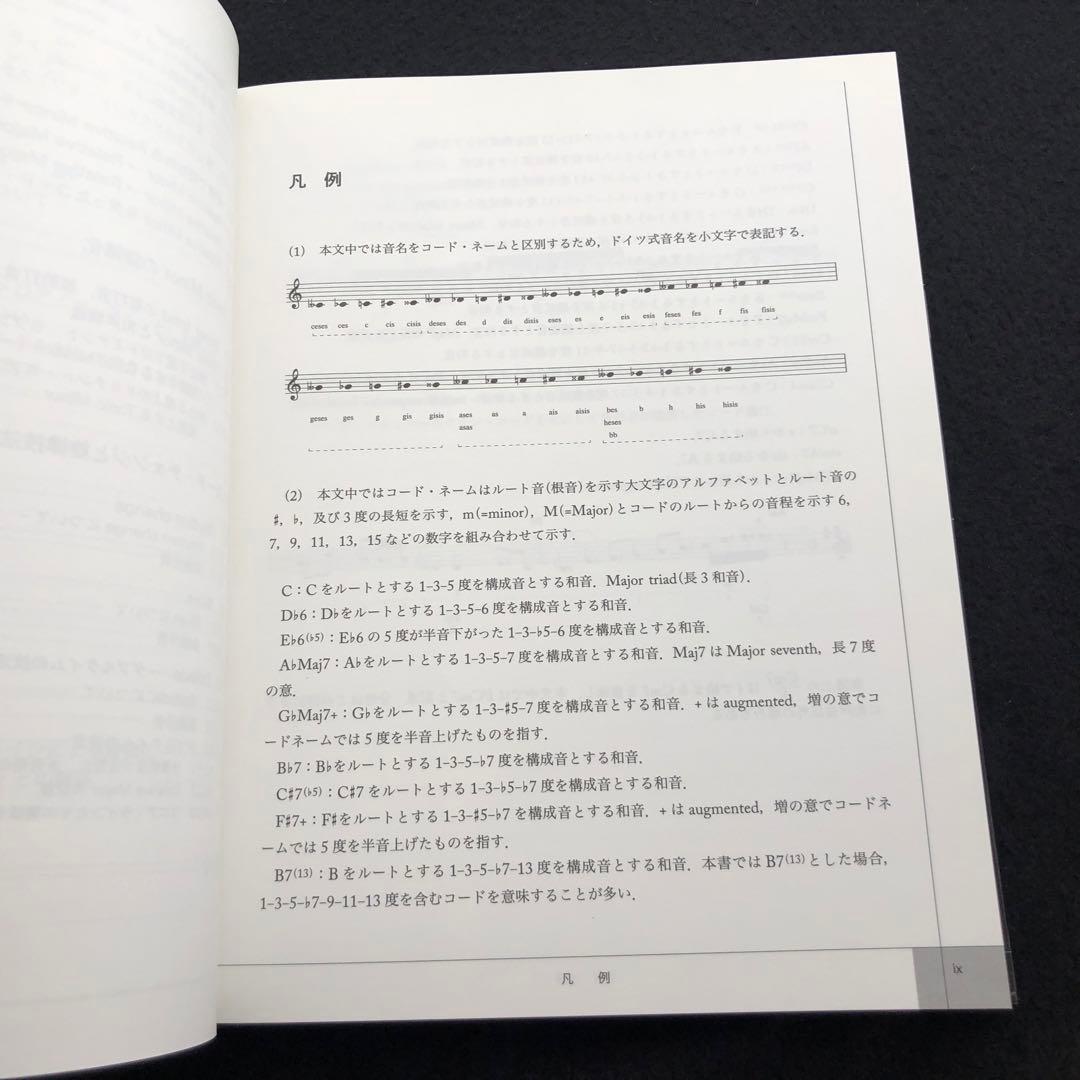 凡 例
(1) 本文中では音名をコード・ネームと区別するため，ドイツ式音名を小文字で表記する．
ceses ces c cis cisis deses des d dis disis eses es e eis eisis feses fes f fis fisis
geses ges g gis gisis ases as a ais aisis bes b h his hisis
asas heses
bb
(2) 本文中ではコード・ネームはルート音(根音)を示す大文字のアルファベットとルート音の
♯，♭，及び3度の長短を示す，m(=minor)，M(=Major)とコードのルートからの音程を示す6，
7，9，11，13，15などの数字を組み合わせて示す．
C：Cをルートとする1–3–5度を構成音とする和音．Major triad(長3和音)．
D♭6：D♭をルートとする1–3–5–6度を構成音とする和音．
E♭6(♭5)：E♭6の5度が半音下がった1–3–♭5–6度を構成音とする和音．
A♭Maj7：A♭をルートとする1–3–5–7度を構成音とする和音．Maj7はMajor seventh，長7度
の意．
G♭Maj7+：G♭をルートとする1–3–♯5–7度を構成音とする和音．+はaugmented，増の意でコ
ードネームでは5度を半音上げたものを指す．
B♭7：B♭をルートとする1–3–5–♭7度を構成音とする和音．
C♯7(♭5)：C♯7をルートとする1–3–♭5–♭7度を構成音とする和音．
F♯7+：F♯をルートとする1–3–♯5–♭7を構成音とする和音．+はaugmented，増の意でコードネ
ームでは5度を半音上げたものを指す．
B7(13)：Bをルートとする1–3–5–♭7–13度を構成音とする和音．本書ではB7(13)とした場合，
1–3–5–♭7–9–11–13度を含むコードを意味することが多い．
凡 例
ix